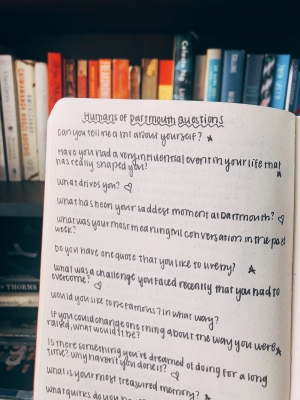 Humans of Dartmouth Questions
Can you tell me a bit about yourself?
Have you had a very influential event in your life that
has really shaped you?
What drives you?
What has been your saddest moment at Dartmouth?
What was your most meaningful conversation in the past
week?
Do you have one quote that you like to live by?
What was a challenge you faced recently that you had to
overcome?
Would you like to be famous? In what way?
If you could change one thing about the way you were
raised, what would it be?
Is there something you've dreamed of doing for a long
time? Why haven't you done it?
What is your most treasured memory?
What quirks do you
THORNE